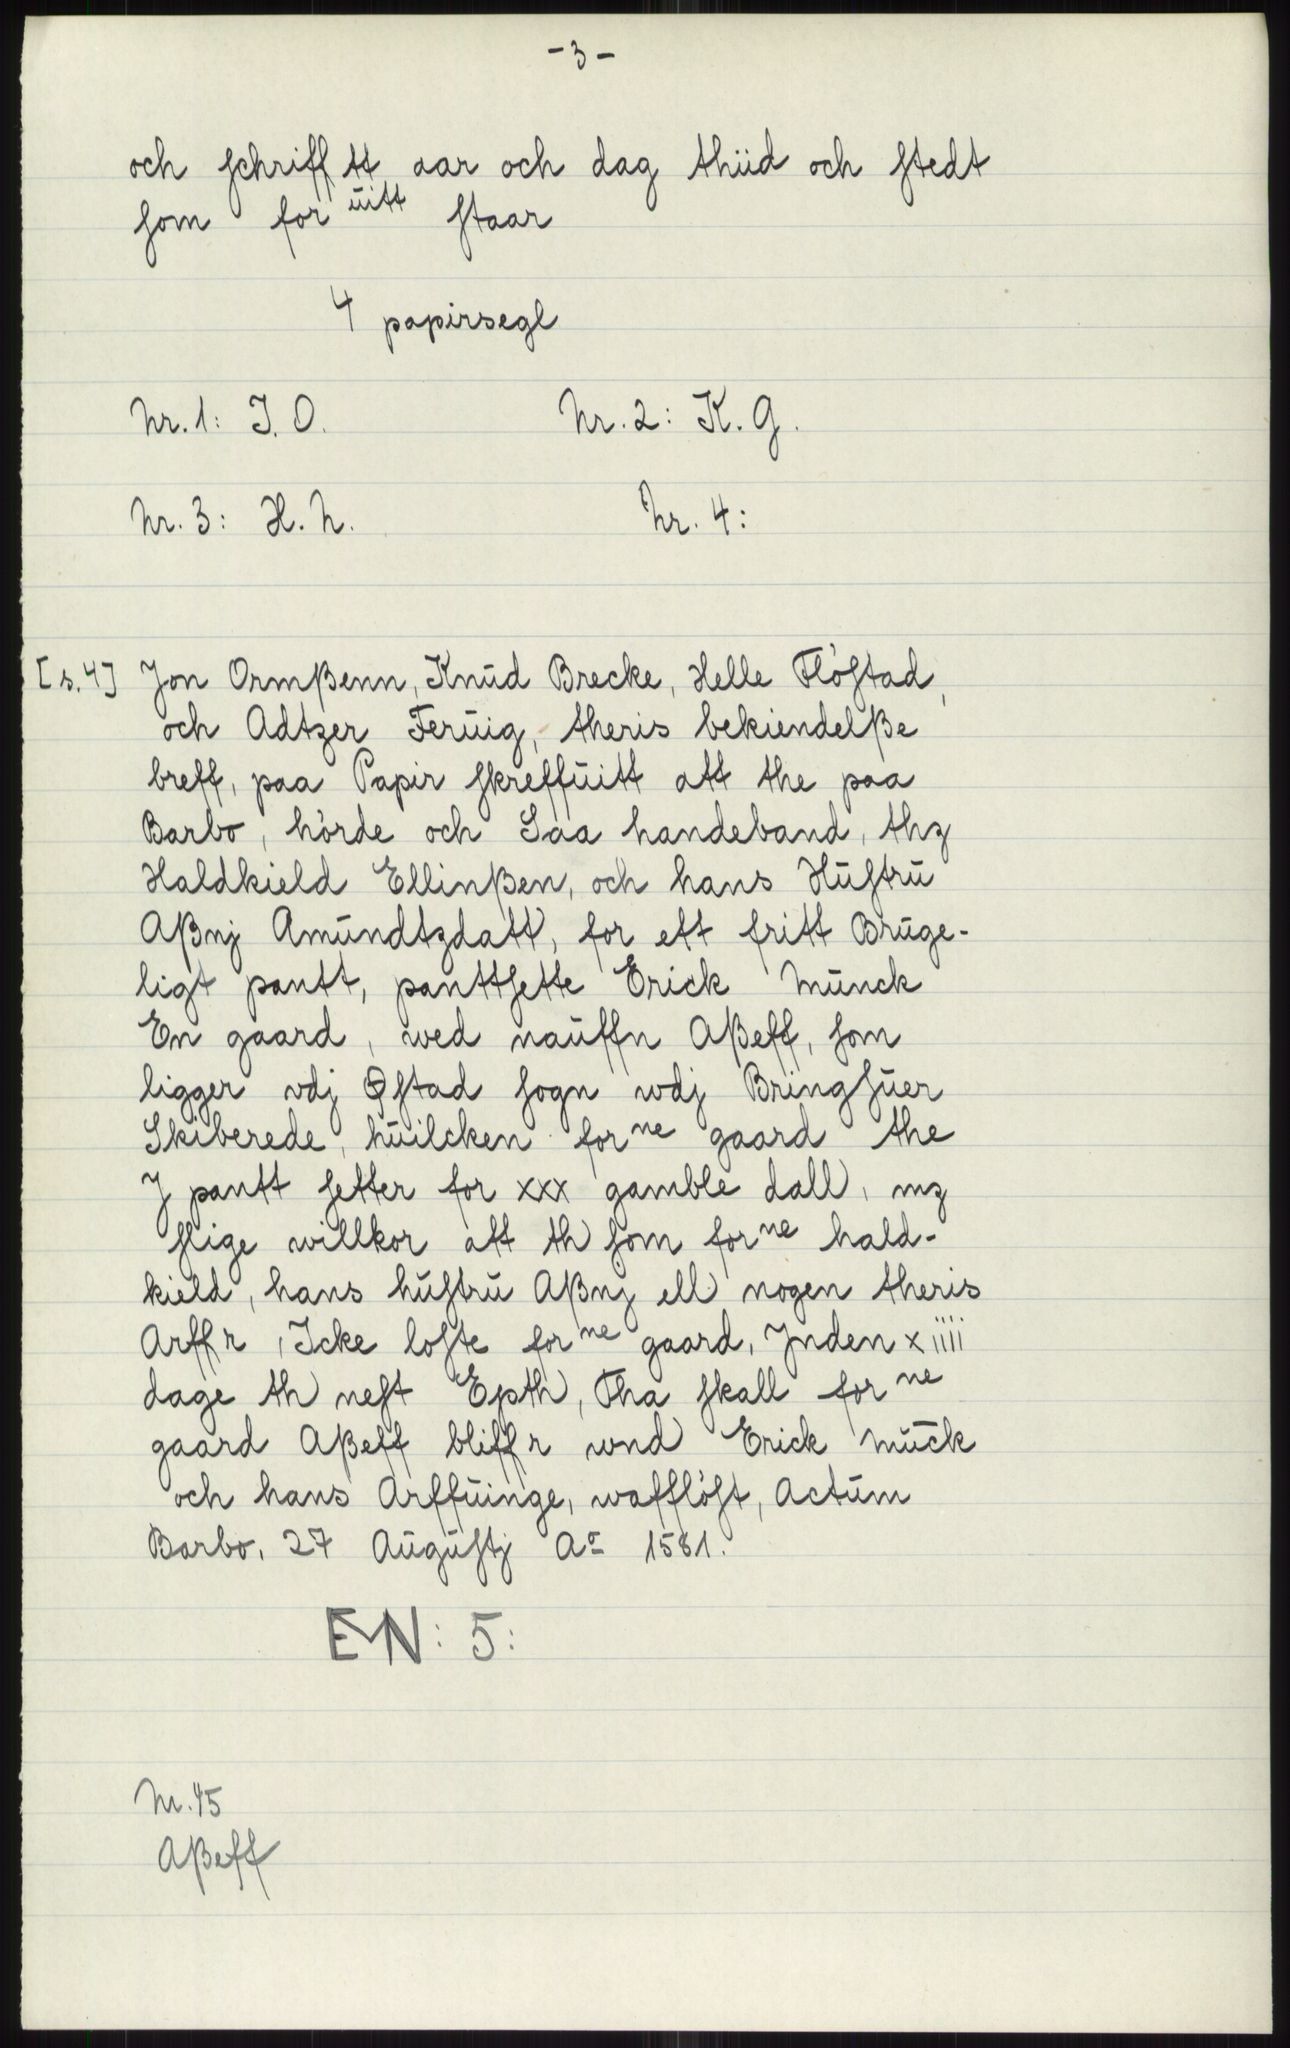 - 3 -
och schrifftt aar och dag thiid och stedt
som foruitt staar
4 papirsegl
Nr. 1: J. O. Nr. 2: K. G.
Nr. 3: H. N. Nr. 4:
[s. 4] Jon Ormßenn, Knud Brecke, Helle Fløstad,
och Adtzer Feruig, theris bekiendelße
breff, paa Papir skreffuitt att the paa
Barbo, hørde och Saa handeband, thz
Haldkield Ellinßen, och hans Hustru
Aßnj Amundtzdatt, for ett fritt Bruge-
ligt pantt, panttsette Erick Munck
En gaard, wed nauffn Aßeff, som
ligger vdj Østad sogn wdj Bringsuer
Skiberede, huilcken forne gaard the
J pantt setter for xxx gamble dall, mz
slige willkor att th som forne hald-
kield, hans hustru Aßnj ell nogen theris
Arffr, Icke løste forne gaard, Jnden xiiii
dage th nest Epth, Tha skall forne
gaard Aßeff bliffr wnd Erick Mūck
och hans Arffuinge, waffløst, Actum
Barbo, 27 Augustj Ao 1581.
EMN: 5:
Nr. 45
Aßeff